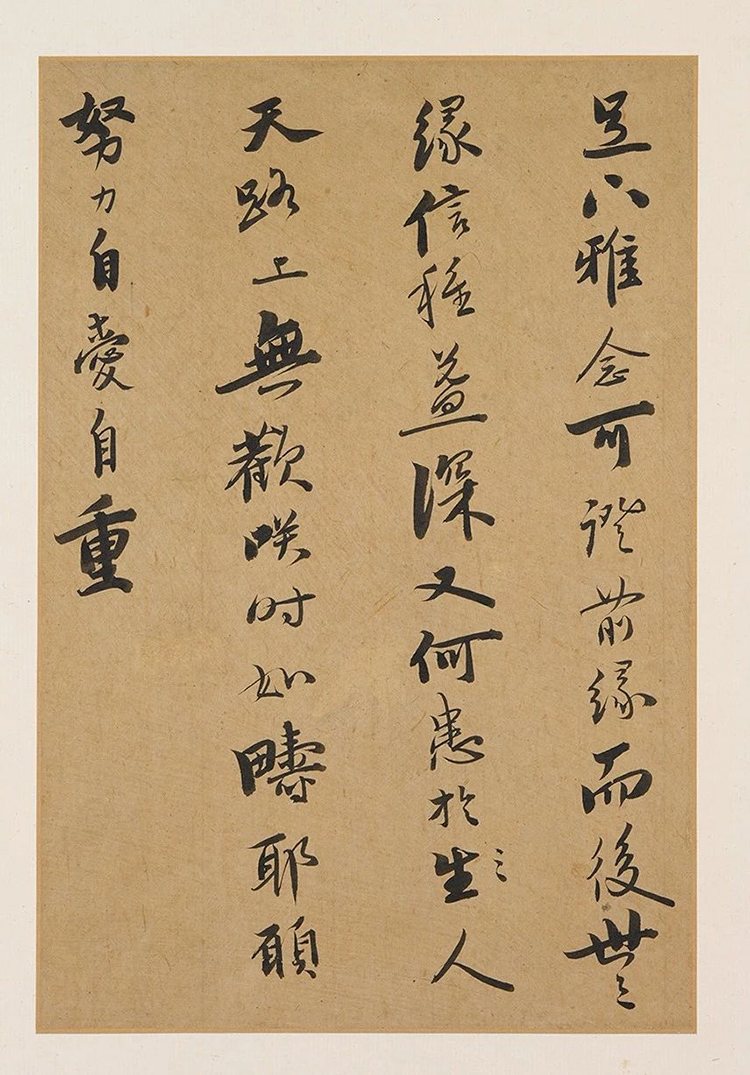 足下雅念可證前緣而後世之
緣信種益深又何患於生〻人
天路上無歡咲時如疇耶願
努力自愛自重